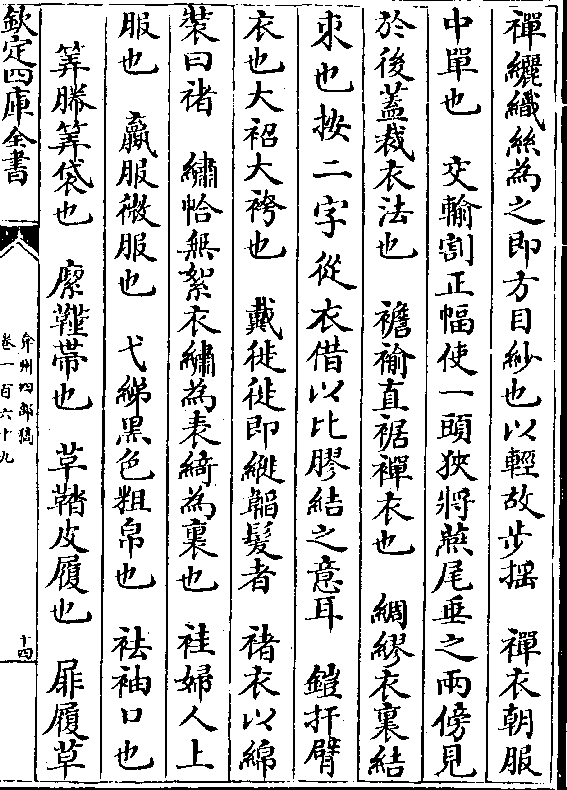 襌纚織絲為之即方目紗也以輕故步搖　襌衣朝服
中單也　交輸割正幅使一頭狹將燕尾垂之兩傍見
於後蓋裁衣法也　襜褕直裾襌衣也　綢繆衣裏結
束也按二字從衣借以比膠結之意耳　鎧扞臂
衣也大袑大袴也　戴縰縰即縰韜髮者　褚衣以綿
裝曰褚　繡袷無絮衣繡為表綺為裏也　袿婦人上
服也　羸服微服也　弋綈黑色粗帛也　袪袖口也
筭縢筭袋也　縻鞮帶也　草鞜皮履也　屝履草
欽定四庫全書
弇州四部稿
卷一百六十九
十四